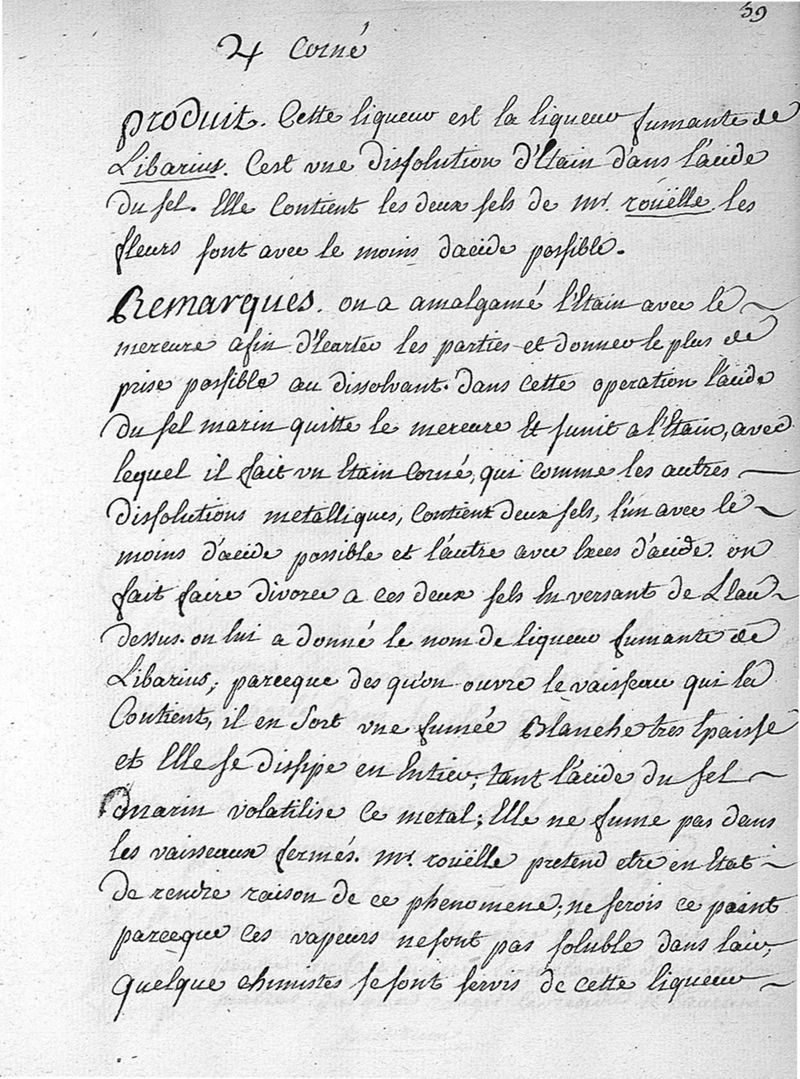 59
♃ Corné
produit. Cette liqueur est la liqueur fumante de
Libarius. C'est vne dissolution d'Etain dans l'acide
du sel. Elle Contient les deux sels de mr. roüelle. les
fleurs sont avec le moins dacide possible.
Remarques. on a amalgamé l'Etain avec le
mercure afin d'Ecarter les parties et donner le plus de
prise possible au dissolvant. dans cette operation l'acide
du sel marin quitte le mercure Et s'unit a l'Etain, avec
lequel il fait vn Etain Corné, qui comme les autres
dissolutions metalliques, Contient deux sels, l'un avec le
moins d'acide possible et l'autre avec Exces d'acide. on
fait faire divorce a ces deux sels En versant de L'eau
dessus. on lui a donné le nom de liqueur fumante de
Libarius; parceque des qu'on ouvre le vaisseau qui la
Contient, il en sort vne fumée Blanche tres Epaisse
et Elle se dissipe en Entier; tant l'acide du sel
marin volatilise ce metal; Elle ne fume pas dans
les vaisseaux fermés. mr. roüelle pretend etre en Etat
de rendre raison de ce phenomene; ne serois ce point
parceque Ces vapeurs ne sont pas soluble dans l'air,
quelque chimistes se sont servis de cette liqueur